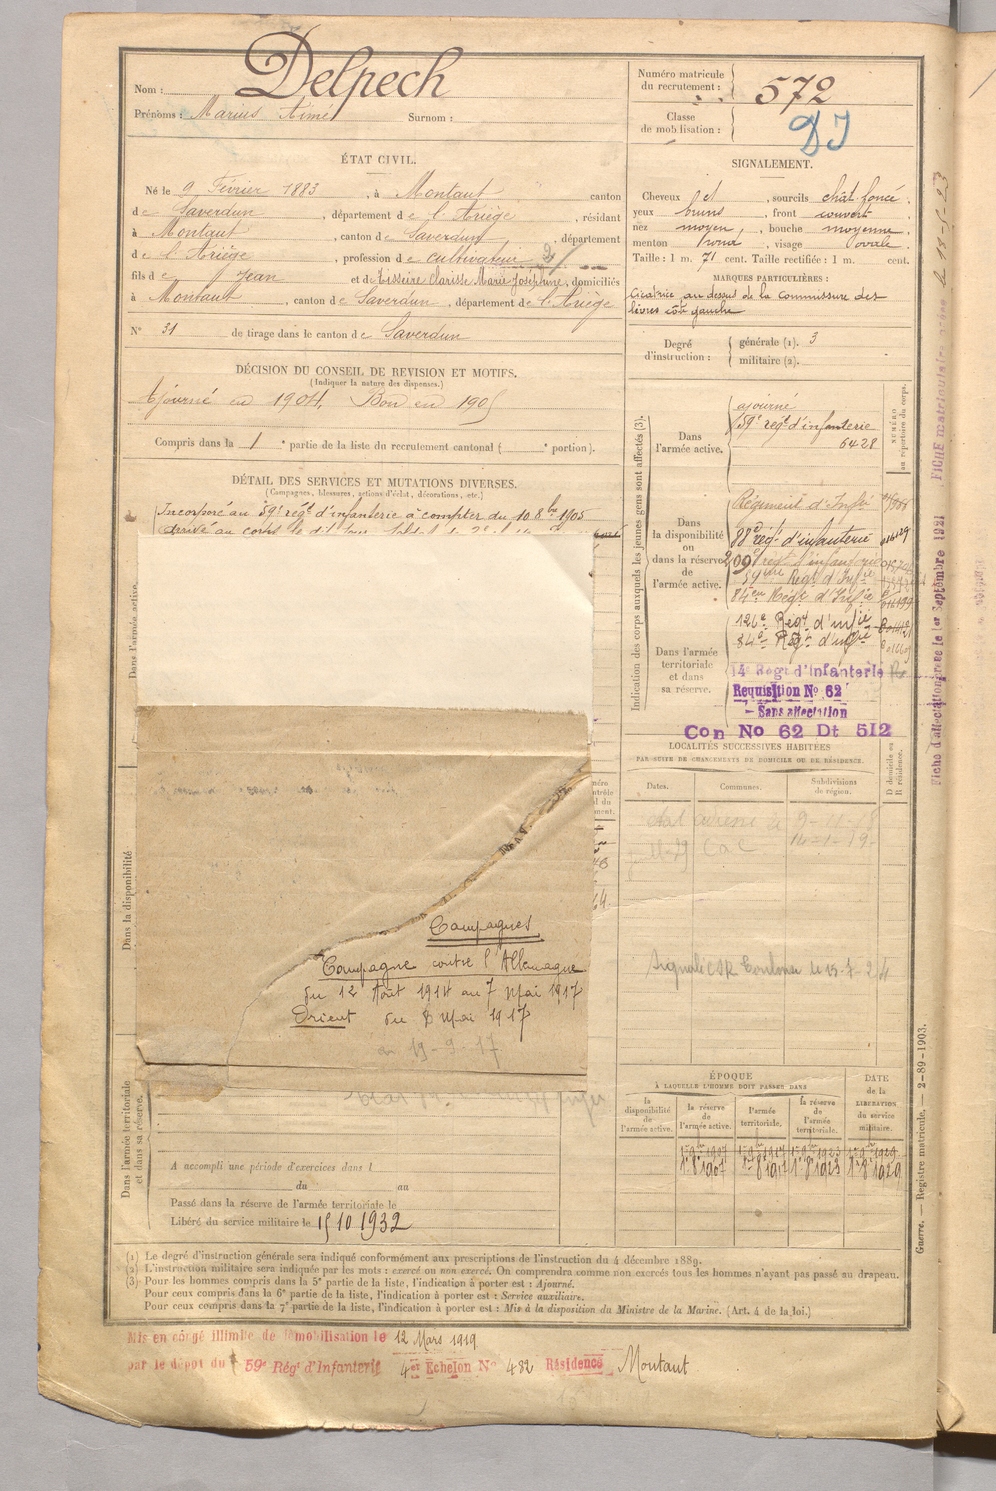 Nom : Delpech
Prénoms : Marius Aimé Surnom :
Numéro matricule
du recrutement : 572
Classe
de mobilisation :
ÉTAT CIVIL.
Né le 9 Février 1883, à Montaut canton
de Saverdun, département de l'Ariège, résidant
à Montaut, canton de Saverdun, département
de l'Ariège, profession de cultivateur
fils de Jean et de Tisseire Clarisse Marie Joséphine, domiciliés
à Montaut, canton de Saverdun, département de l'Ariège
N° 31 de tirage dans le canton de Saverdun
SIGNALEMENT.
Cheveux et, sourcils chât foncé.
yeux bruns, front couvert
nez moyen, bouche moyenne
menton rond, visage ovale.
Taille : 1 m. 71 cent. Taille rectifiée : 1 m. cent.
MARQUES PARTICULIÈRES :
Cicatrice au dessus de la commissure des
lèvres côté gauche
Degré
d'instruction :
générale (1). 3
militaire (2).
DÉCISION DU CONSEIL DE REVISION ET MOTIFS.
(Indiquer la nature des dispenses.)
Ajourné en 1904. Bon en 1905
Compris dans la 1e partie de la liste du recrutement cantonal ( e portion).
DÉTAIL DES SERVICES ET MUTATIONS DIVERSES.
(Campagnes, blessures, actions d'éclat, décorations, etc.)
Incorporé au 59e régt d'infanterie à compter du 10 8bre 1905
arrivé au corps le dit jour
Dans l'armée active.
Dans la disponibilité
Dans l'armée territoriale
et dans sa réserve.
Campagnes
Campagne contre l'Allemagne
du 12 Août 1914 au 7 Mai 1917
Orient du 8 Mai 1917
au 19-9-17
A accompli une période d'exercices dans l
du au
Passé dans la réserve de l'armée territoriale le
Libéré du service militaire le 15 10 1932
Indication des corps auxquels les jeunes gens sont affectés (3).
NUMÉRO
au répertoire du corps.
Dans
l'armée active.
ajourné
59e régt d'infanterie
6428
Dans
la disponibilité
ou
dans la réserve
de
l'armée active.
Régiment d'Infie
88e régt d'infanterie
209e régt d'infanterie
59ème Régt d'Infie
84em Régt d'Infie
Dans l'armée
territoriale
et dans
sa réserve.
126e Régt d'infie
84e Régt d'infie
14e Régt d'Infanterie
Requisition No 62
- Sans affectation
Con No 62 Dt 512
LOCALITÉS SUCCESSIVES HABITÉES
PAR SUITE DE CHANGEMENTS DE DOMICILE OU DE RÉSIDENCE.
Dates. Communes. Subdivisions
de région.
D domicile ou
R résidence.
Signalé CSR Toulouse le 15-7-24
ÉPOQUE
À LAQUELLE L'HOMME DOIT PASSER DANS
DATE
de la
LIBÉRATION
du service
militaire.
la
disponibilité
de
l'armée active.
la réserve
de
l'armée active.
l'armée
territoriale.
la réserve
de
l'armée
territoriale.
1er 9bre 1907 1er 9bre 1917 1er 9bre 1923 1er 9bre 1929
1er 8 1907 1er 8 1917 1er 8 1923 1er 8 1929
(1) Le degré d'instruction générale sera indiqué conformément aux prescriptions de l'instruction du 4 décembre 1889.
(2) L'instruction militaire sera indiquée par les mots : exercé ou non exercé. On comprendra comme non exercés tous les hommes n'ayant pas passé au drapeau.
(3) Pour les hommes compris dans la 5e partie de la liste, l'indication à porter est : Ajourné.
Pour ceux compris dans la 6e partie de la liste, l'indication à porter est : Service auxiliaire.
Pour ceux compris dans la 7e partie de la liste, l'indication à porter est : Mis à la disposition du Ministre de la Marine. (Art. 4 de la loi.)
Mis en congé illimité de démobilisation le 12 Mars 1919
par le dépôt du 59e Régt d'Infanterie 4er Echelon No 482 Résidence Montaut
Guerre. — Registre matricule. — 2-89-1903.
Fiche d'affectation posée le 1er Septembre 1921
FICHE matriculaire posée le 18-5-23